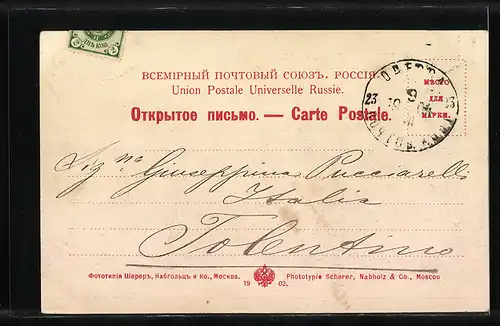 ВСЕМІРНЫЙ ПОЧТОВЫЙ СОЮЗЪ. РОССІЯ.
Union Postale Universelle Russie.
Открытое письмо. — Carte Postale.
МѢСТО
ДЛЯ
МАРКИ.
ОДЕССА
23
Signa Giuseppina Pucciarelli
Italia
Tolentino
Фототипія Шереръ, Набгольцъ и Ко., Москва.
1902.
Phototypie Scherer, Nabholz & Co., Moscou